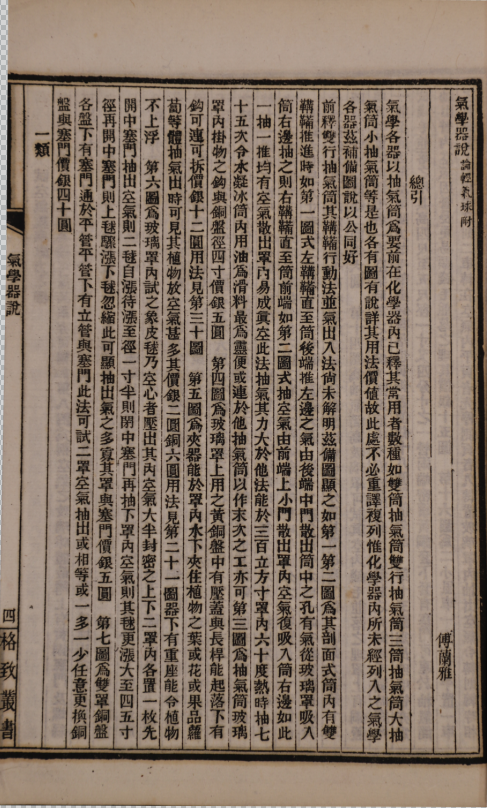 氣學器說 論輕氣球附
傅蘭雅
總引
氣學各器以抽氣筒爲要前在化學器內已釋其常用者數種如雙筒抽氣筒雙行抽氣筒三筒抽氣筒大抽
氣筒小抽氣筒等是也各有圖有說詳其用法價値故此處不必重譯複列惟化學器內所未經列入之氣學
各器茲補備圖說以公同好
前釋雙行抽氣筒其鞲鞴行動法並氣出入法尙未解明茲備圖顯之如第一第二圖爲其剖面式筒內有雙
鞲鞴推進時如第一圖式左鞲鞴直至筒後端推左邊之氣由後端中門散出筒中之孔有氣從玻璃罩吸入
筒右邊抽之則右鞲鞴直至筒前端如第二圖式抽空氣由前端上小門散出罩內空氣復吸入筒右邊如此
一抽一推均有空氣散出罩內易成眞空此法抽氣其力大於他法能於三百立方寸罩內六十度熱時抽七
十五次令水凝冰筒內用油爲滑料最爲靈便或連於他抽氣筒以作末次之工亦可第三圖爲抽氣筒玻璃
罩內掛物之鈎與銅盤徑四寸價銀五圓 第四圖爲玻璃罩上用之黃銅盤中有壓蓋與長桿能起落下有
鈎可連可拆價銀十二圓用法見第三十圖 第五圖爲夾器能於罩內水下夾住植物之葉或花或果品蘿
蔔等體抽氣出時可見其植物放空氣甚多其價銀二圓銅六圓用法見第二十一圖器下有重座能令植物
不上浮 第六圖爲玻璃罩內試之象皮毬乃空心者壓出其內空氣大半封密之上下二罩內各置一枚先
開中塞門抽出空氣則二毬自漲待漲至徑一寸半則閉中塞門再抽下罩內空氣則其毬更漲大至四五寸
徑再開中塞門則上毬驟漲下毬忽縮此可顯抽出氣之多寡其罩與塞門價銀五圓 第七圖爲雙罩銅盤
各盤下有塞門通於平管平管下有立管與塞門此法可試二罩空氣抽出或相等或一多一少任意更換銅
盤與塞門價銀四十圓
一類
氣學器說
四
格致叢書